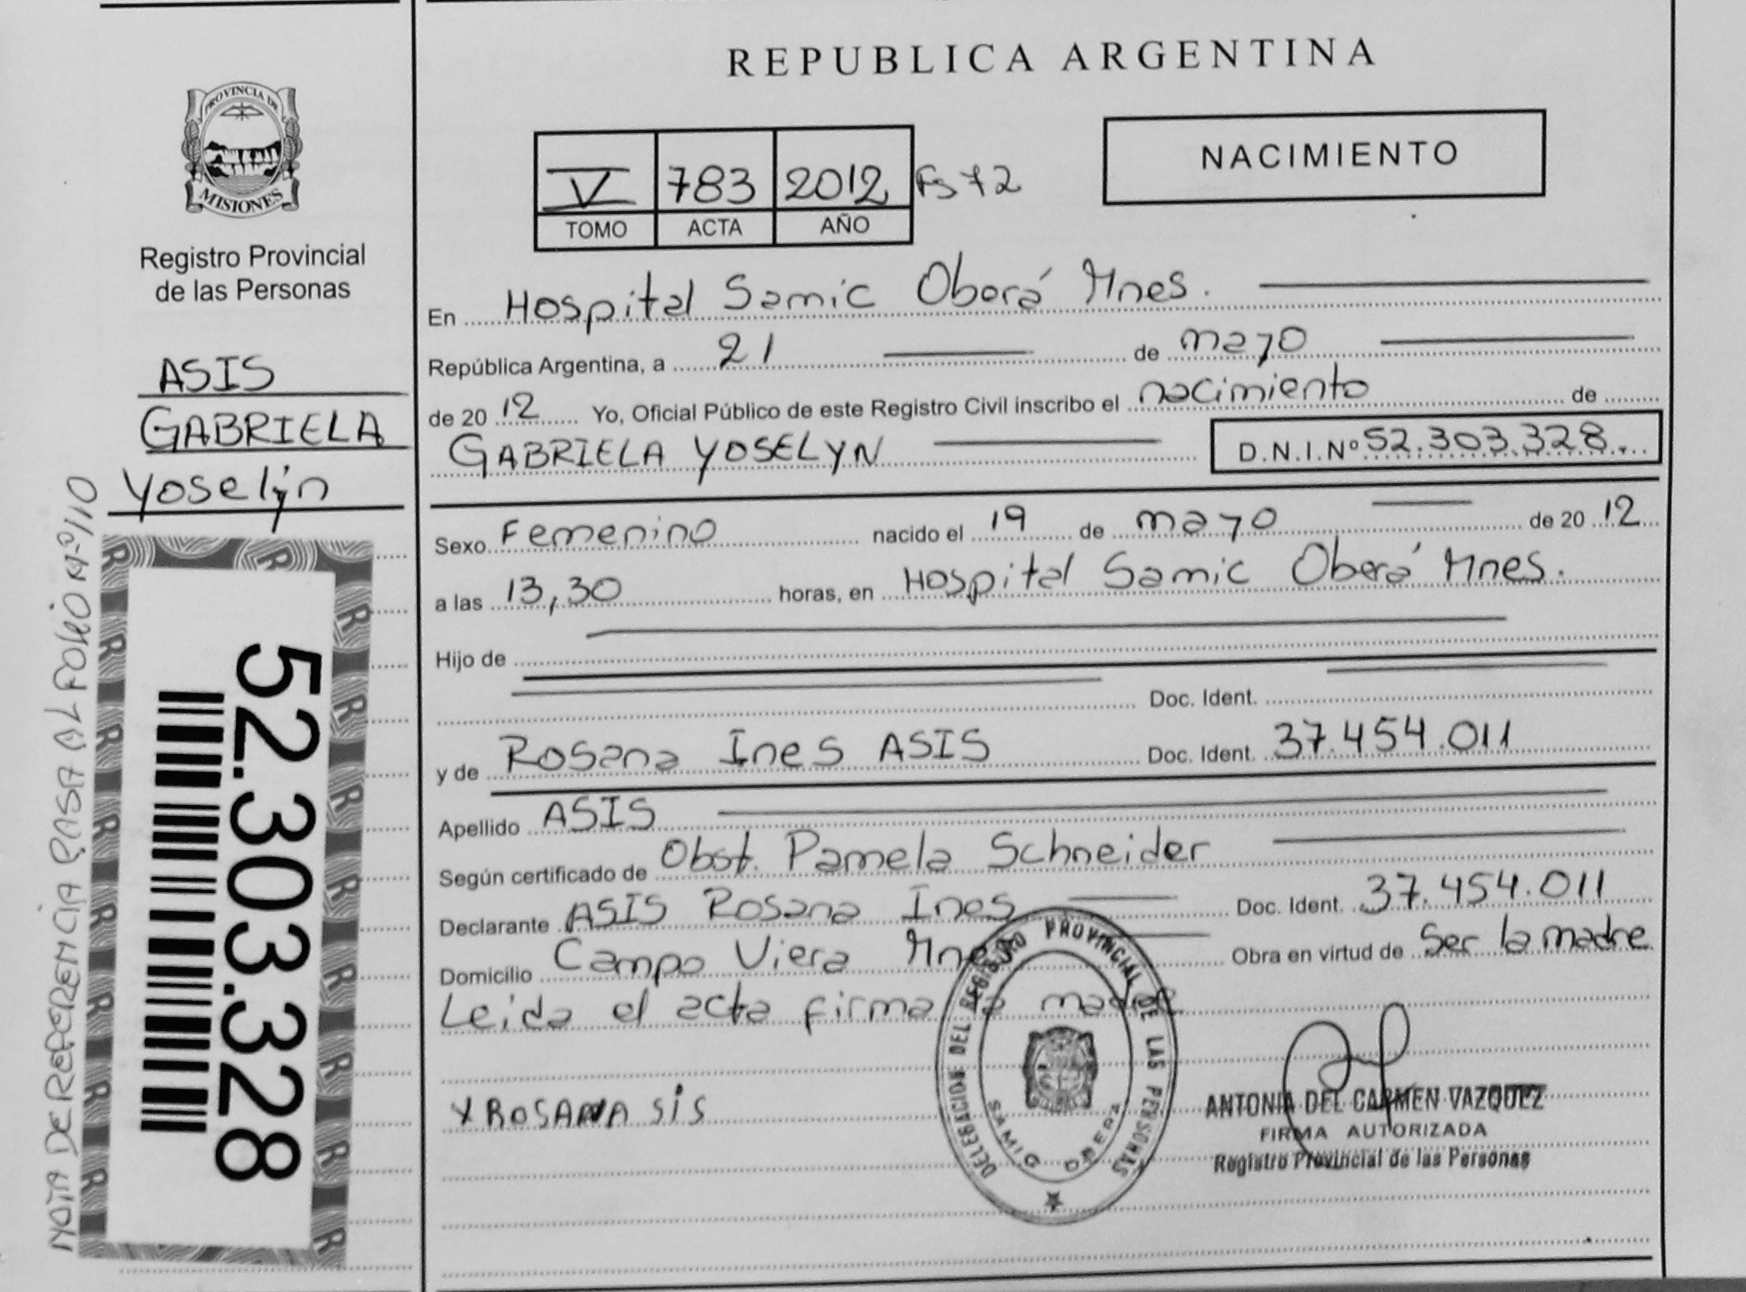 REPUBLICA ARGENTINA
NACIMIENTO
V 783 2012 Fs 72
TOMO ACTA AÑO
PROVINCIA DE
MISIONES
Registro Provincial
de las Personas
ASIS
GABRIELA
Yoselyn
NOTA DE REFERENCIA PASA AL FOLIO Nº 110
52.303.328
En Hospital Samic Oberá Mnes.
República Argentina, a 21 de mayo
de 20 12 Yo, Oficial Público de este Registro Civil inscribo el nacimiento de
GABRIELA YOSELYN D.N.I.Nº 52.303.328
Sexo Femenino nacido el 19 de mayo de 20 12
a las 13,30 horas, en Hospital Samic Oberá Mnes.
Hijo de
Doc. Ident.
y de Rosana Ines ASIS Doc. Ident. 37.454.011
Apellido ASIS
Según certificado de Obst. Pamela Schneider
Declarante ASIS Rosana Ines Doc. Ident. 37.454.011
Domicilio Campo Viera Mnes Obra en virtud de Ser la madre
Leida el acta firma la madre
X ROSANA SIS
DELEGACION DEL REGISTRO PROVINCIAL DE LAS PERSONAS
SAMIC OBERA
ANTONIA DEL CARMEN VAZQUEZ
FIRMA AUTORIZADA
Registro Provincial de las Personas